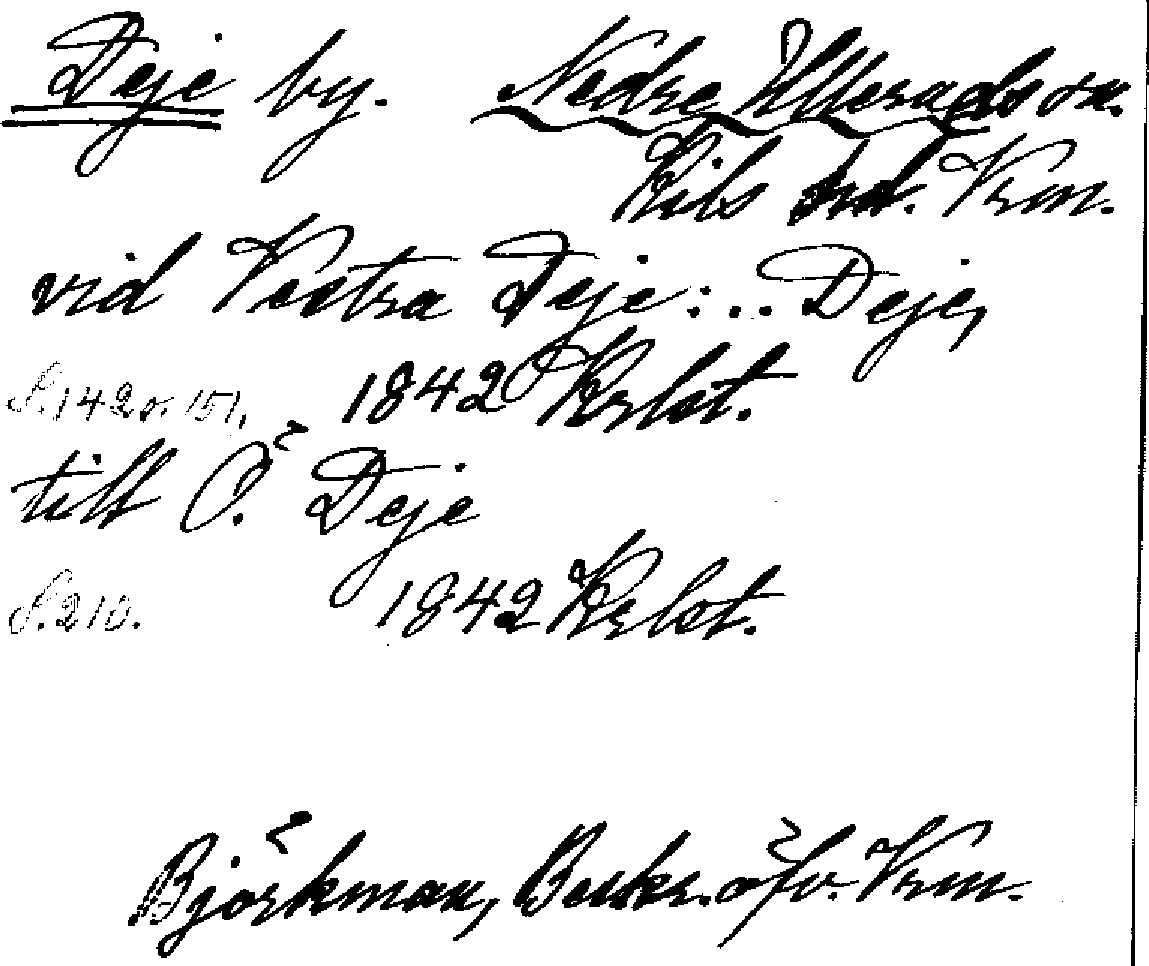 Deje by. Nedre Ulleruds sn.
Kils hd. Vrm.
vid Vestra Deje: .. Deje,
S. 142 o. 151. 1842 Krlst.
till Ö. Deje
S. 210. 1842 Krlst.
Björkman, Beskr. öfv. Vrm.